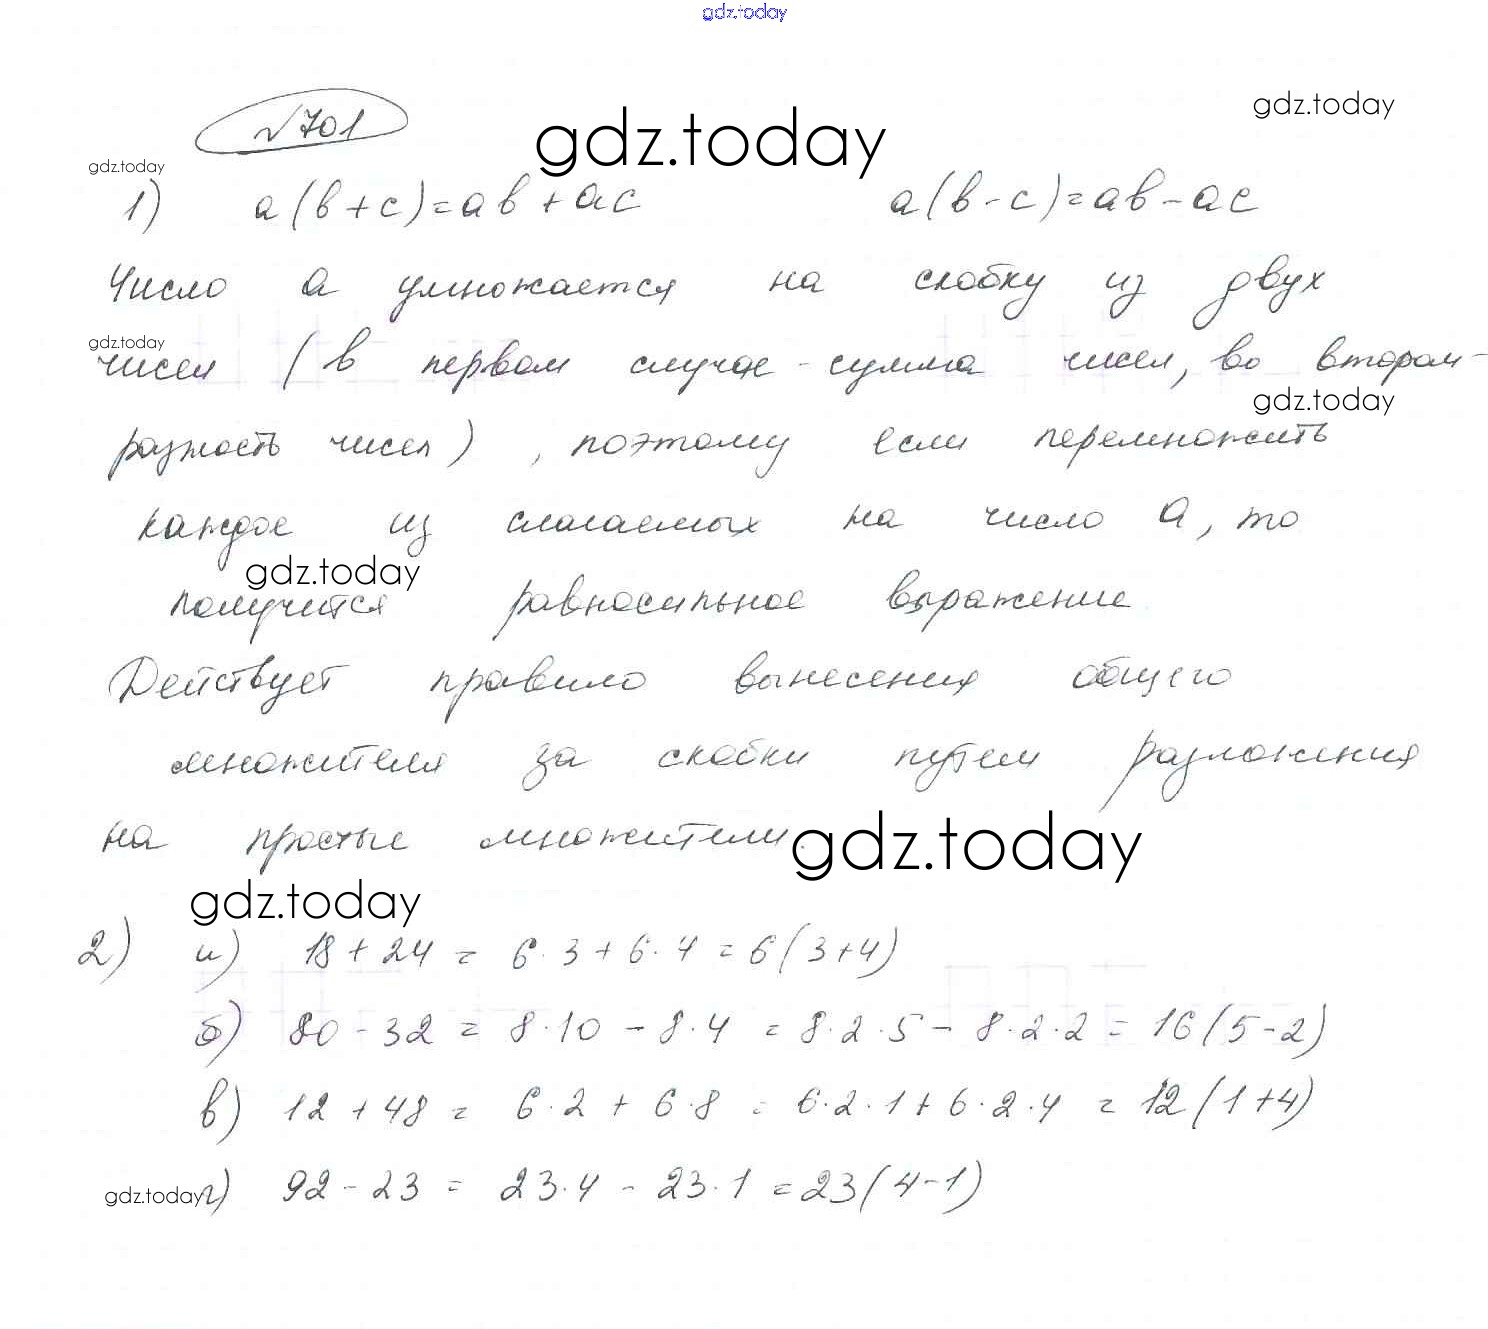 gdz.today
№701
gdz.today
gdz.today
gdz.today
1) a(b+c)=ab+ac a(b-c)=ab-ac
Число a умножается на скобку из двух
gdz.today
чисел (в первом случае - сумма чисел, во втором-
gdz.today
разность чисел), поэтому если перемножить
каждое из слагаемых на число a, то
gdz.today
получится равносильное выражение
Действует правило вынесения общего
множителя за скобки путем разложения
на простые множители.
gdz.today
gdz.today
2) а) 18+24 = 6·3+6·4=6(3+4)
б) 80-32 = 8·10-8·4 = 8·2·5-8·2·2=16(5-2)
в) 12+48 = 6·2+6·8 = 6·2·1+6·2·4 = 12(1+4)
gdz.today
г) 92-23 = 23·4-23·1=23(4-1)